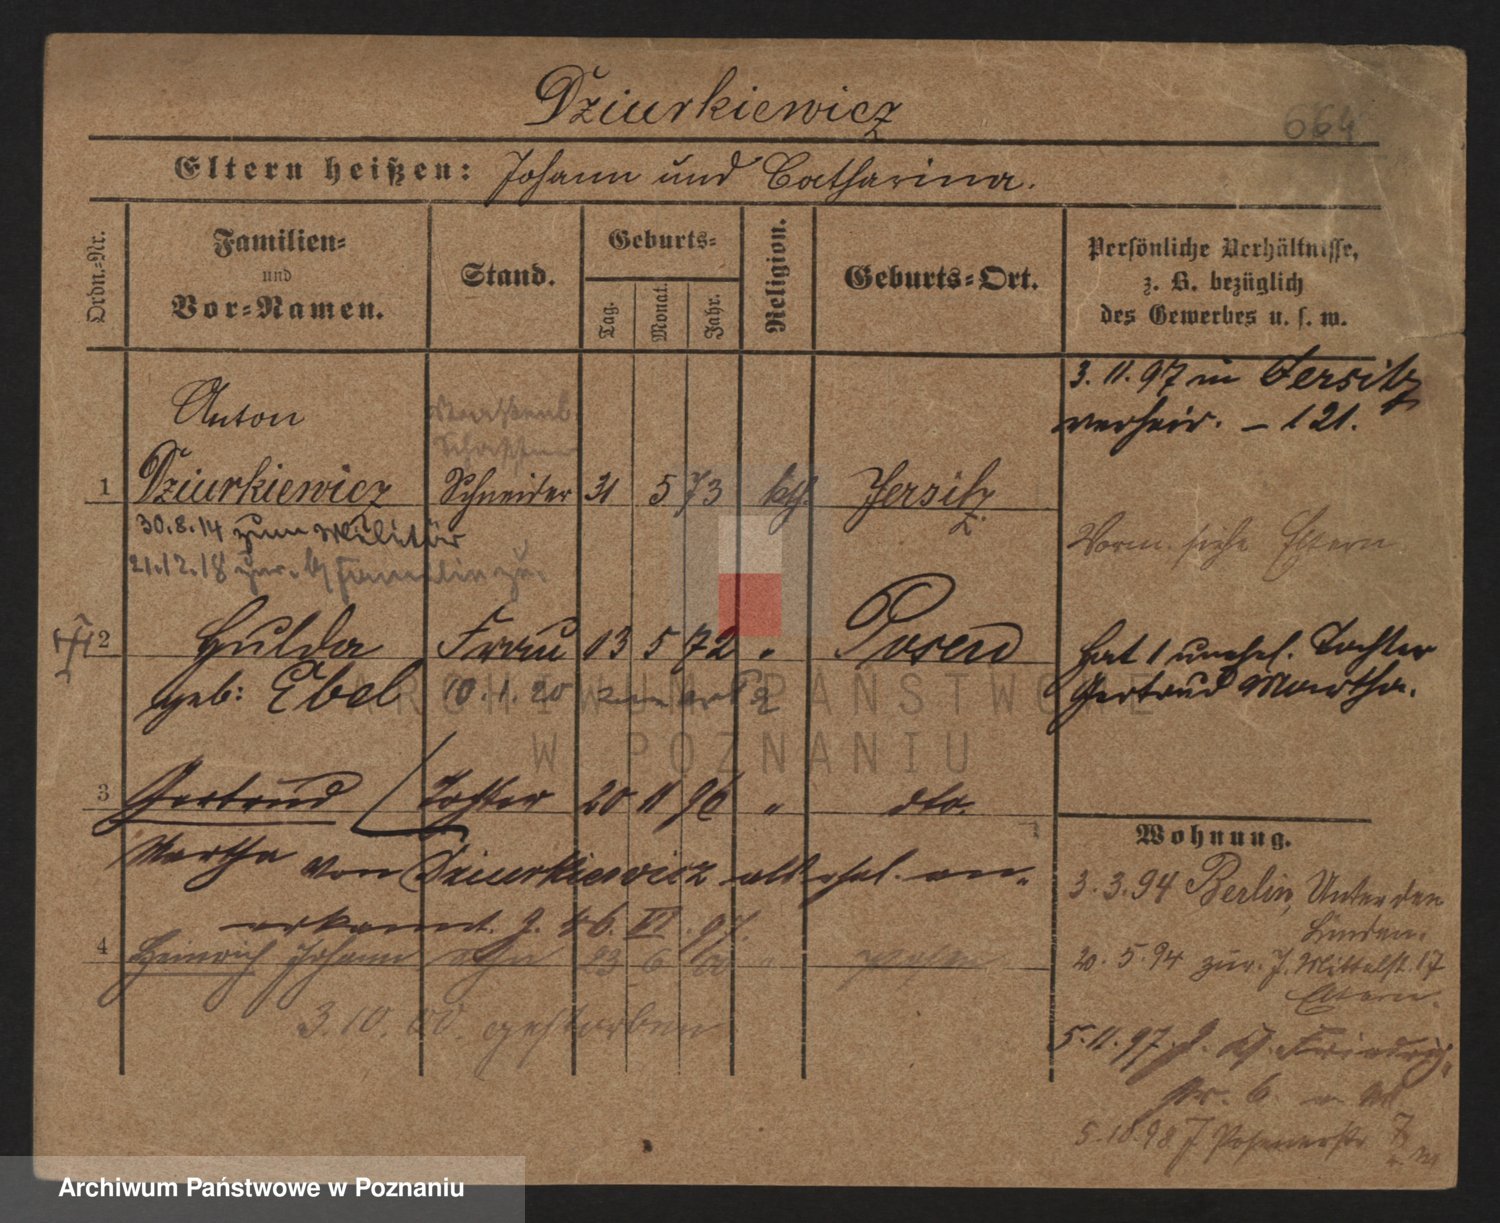 Dziurkiewicz
664
Eltern heißen: Johann und Catharina.
Ordn.-Nr.
Familien-
und
Vor-Namen.
Stand.
Geburts-
Tag.
Monat.
Jahr.
Religion.
Geburts-Ort.
Persönliche Verhältnisse,
z. B. bezüglich
des Gewerbes u. s. w.
3. 11. 97 in Jersitz
verheir. - 121.
Anton
1 Dziurkiewicz Schneider 31 5 73 kth. Jersitz
30.8.14 zum Militär
21.12.18 zur.
Vorm. siehe Eltern
2 Hulda Frau 13 5 72 " Posen
geb: Ebel 10.1.20
Hat 1 unehel. Tochter
Gertrud Martha.
3 Gertrud Tochter 20 11 96 " dto.
Martha von Dziurkiewicz als ehel. an-
erkannt. J. 46. VI. 97.
4 Heinrich Johann Sohn 23 6 00 " Posen
3.10.00. gestorben
Wohnung.
3. 3. 94 Berlin, Unter den
Linden.
20. 5. 94 zur. J. Mittelst. 17
Eltern.
5. 11. 97. J. Friedrich
str. 6.
5.10.98 J Posenerstr 7
ARCHIWUM PAŃSTWOWE
W POZNANIU
Archiwum Państwowe w Poznaniu